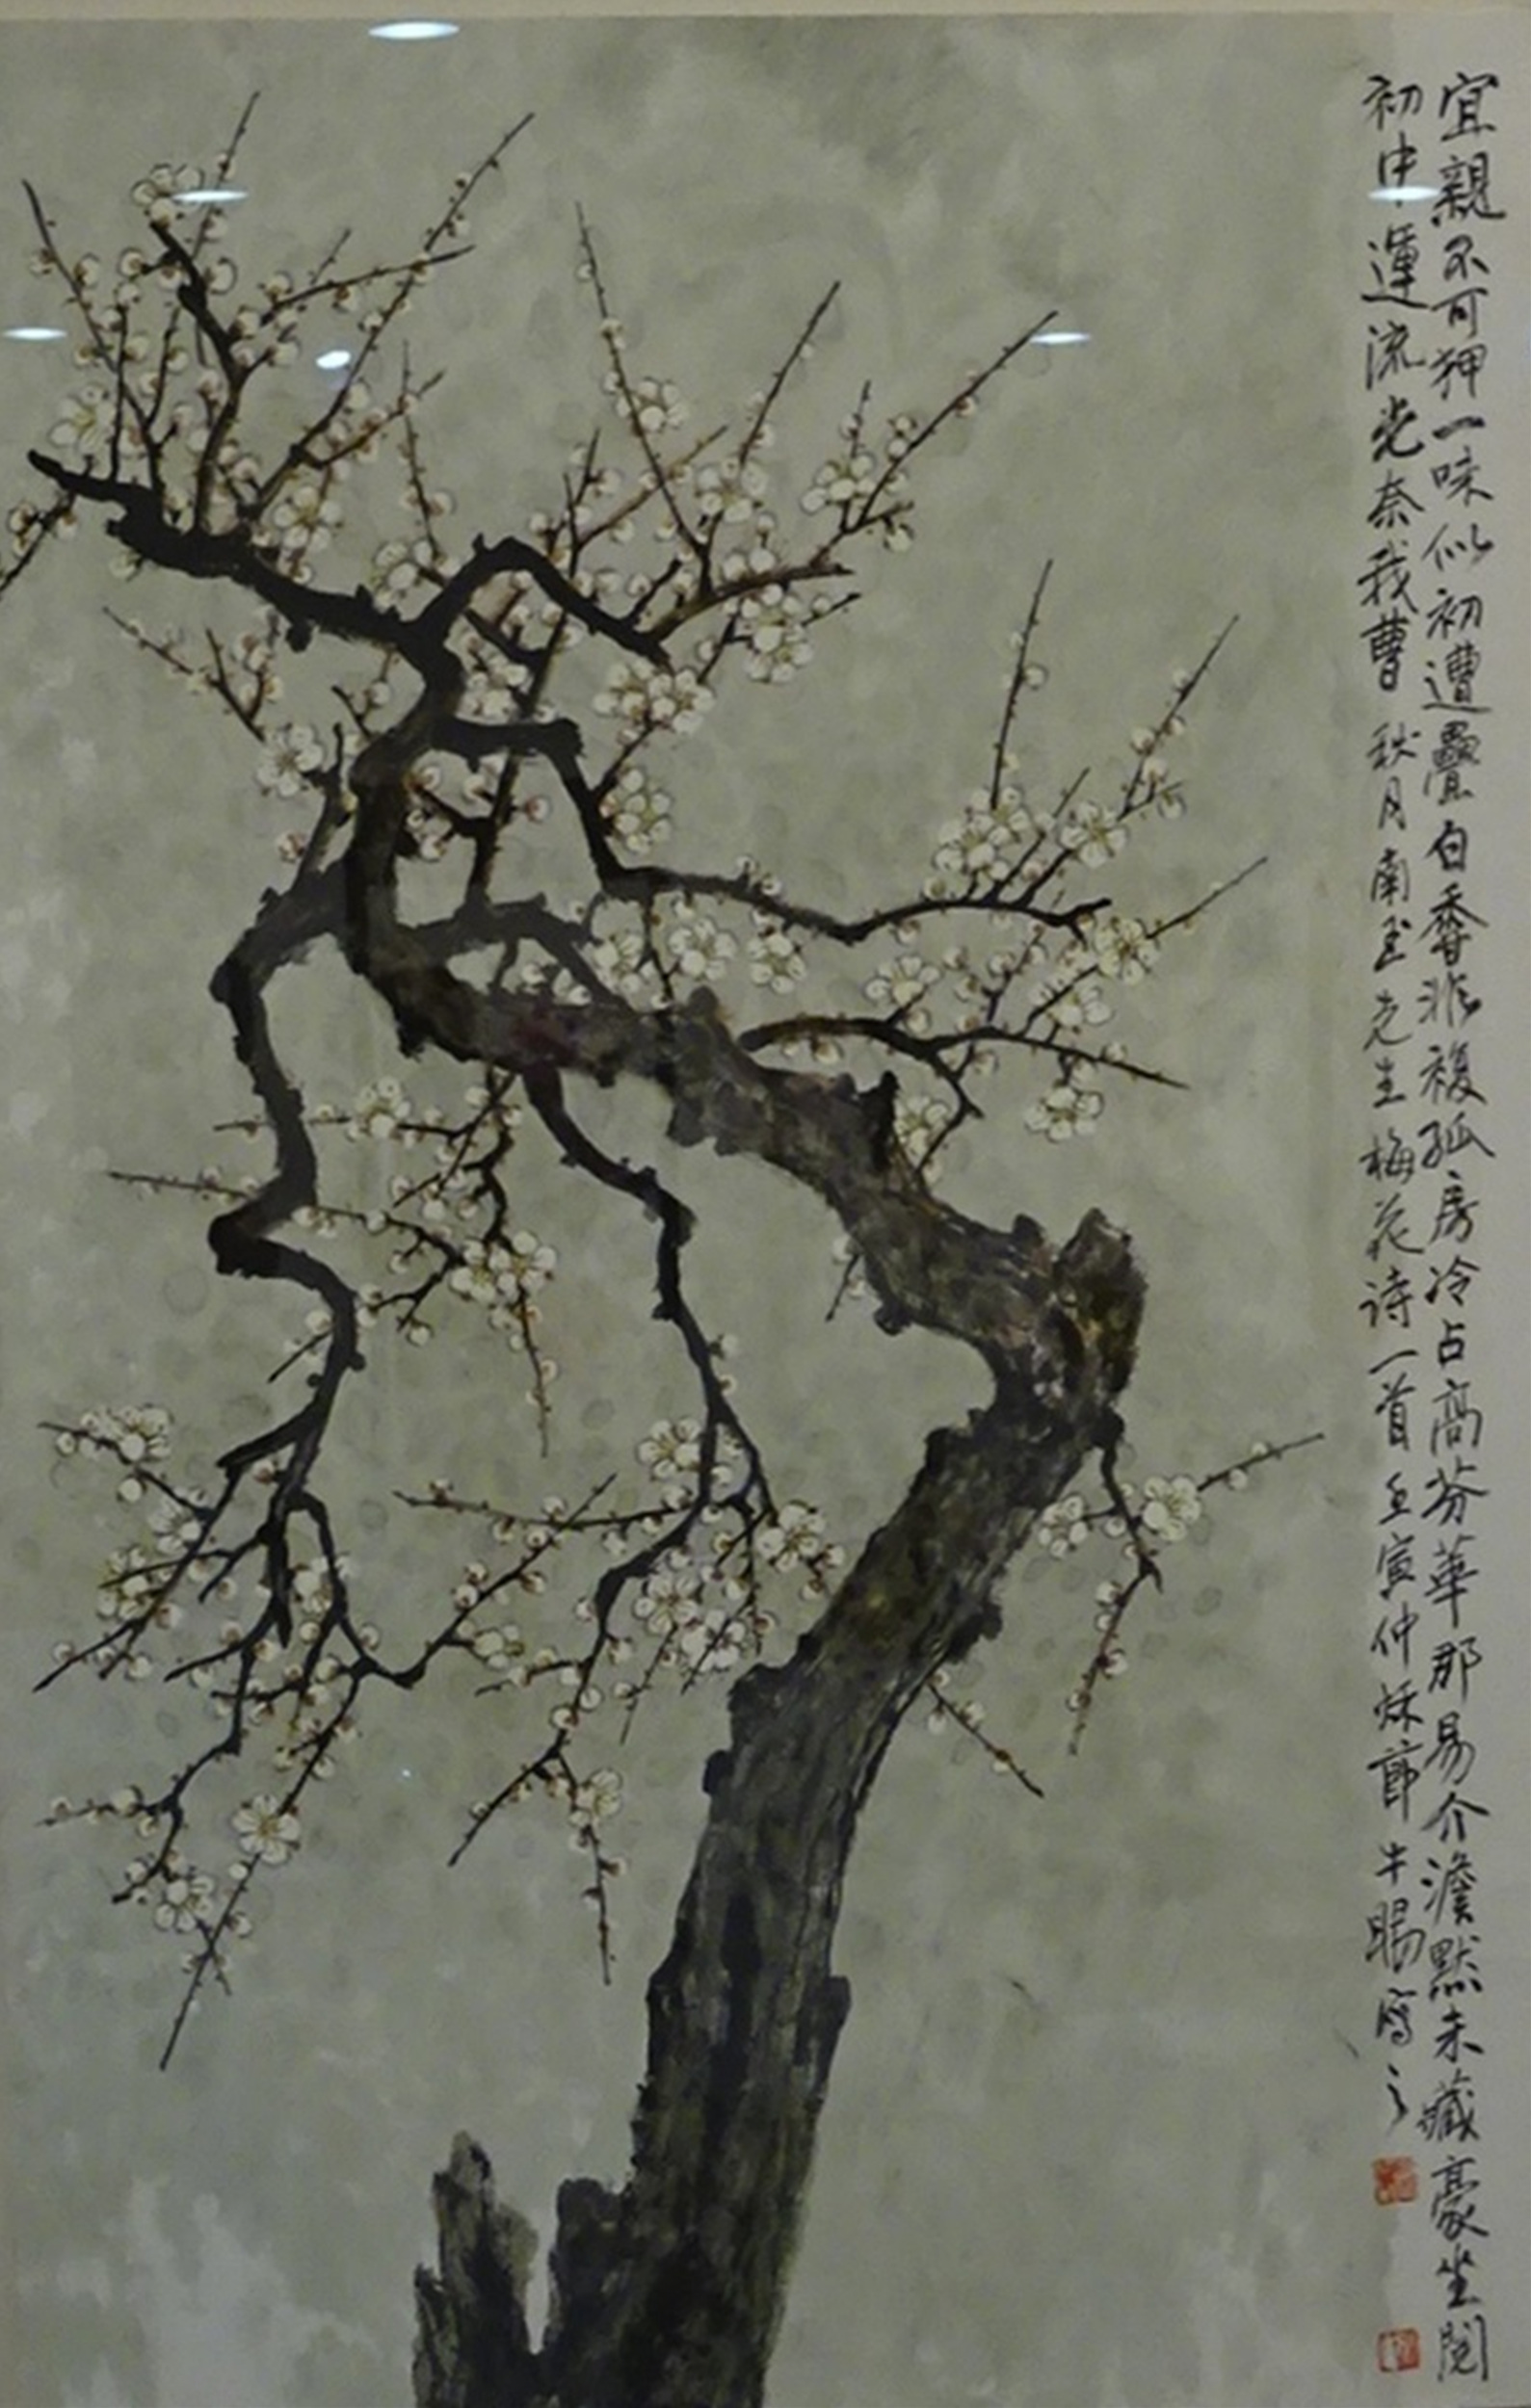 宜親不可狎一味似初遭疊白香非複孤房冷占高芬華那易介澹默未藏豪坐閱
初中運流光奈我曹 秋月南玉先生梅花诗一首 丑寅仲秋節牛賜寫之